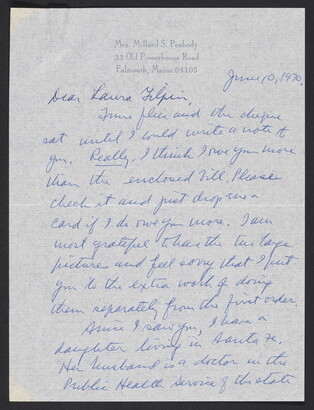 Mrs. Millard S. Peabody
33 Old Powerhouse Road
Falmouth, Maine 04105
June 10, 1970.
Dear Laura Gilpin,
Time flies and the
sat until I could write a note to
you. Really, I think I owe you more
than the enclosed bill. Please
check it and just drop me a
card if I do owe you more. I am
most grateful to have the two large
pictures and feel sorry that I put
you to the extra work of doing
them separately from the first order.
Since I saw you, I have a
daughter living in Santa Fe.
Her husband is a doctor in the
Public Health Service of the state